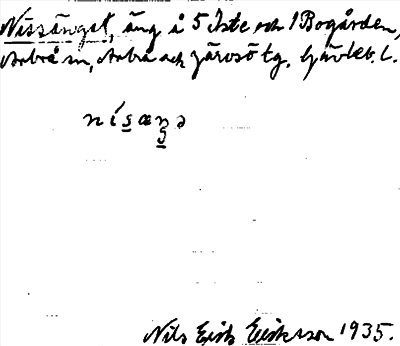 Nissänget, äng å 5 Iste och 1 Bogården,
Arbrå sn, Arbrå och Järvsö tg, Gävleb. l.
nísæŋə
Nils Erik Eriksson 1935.